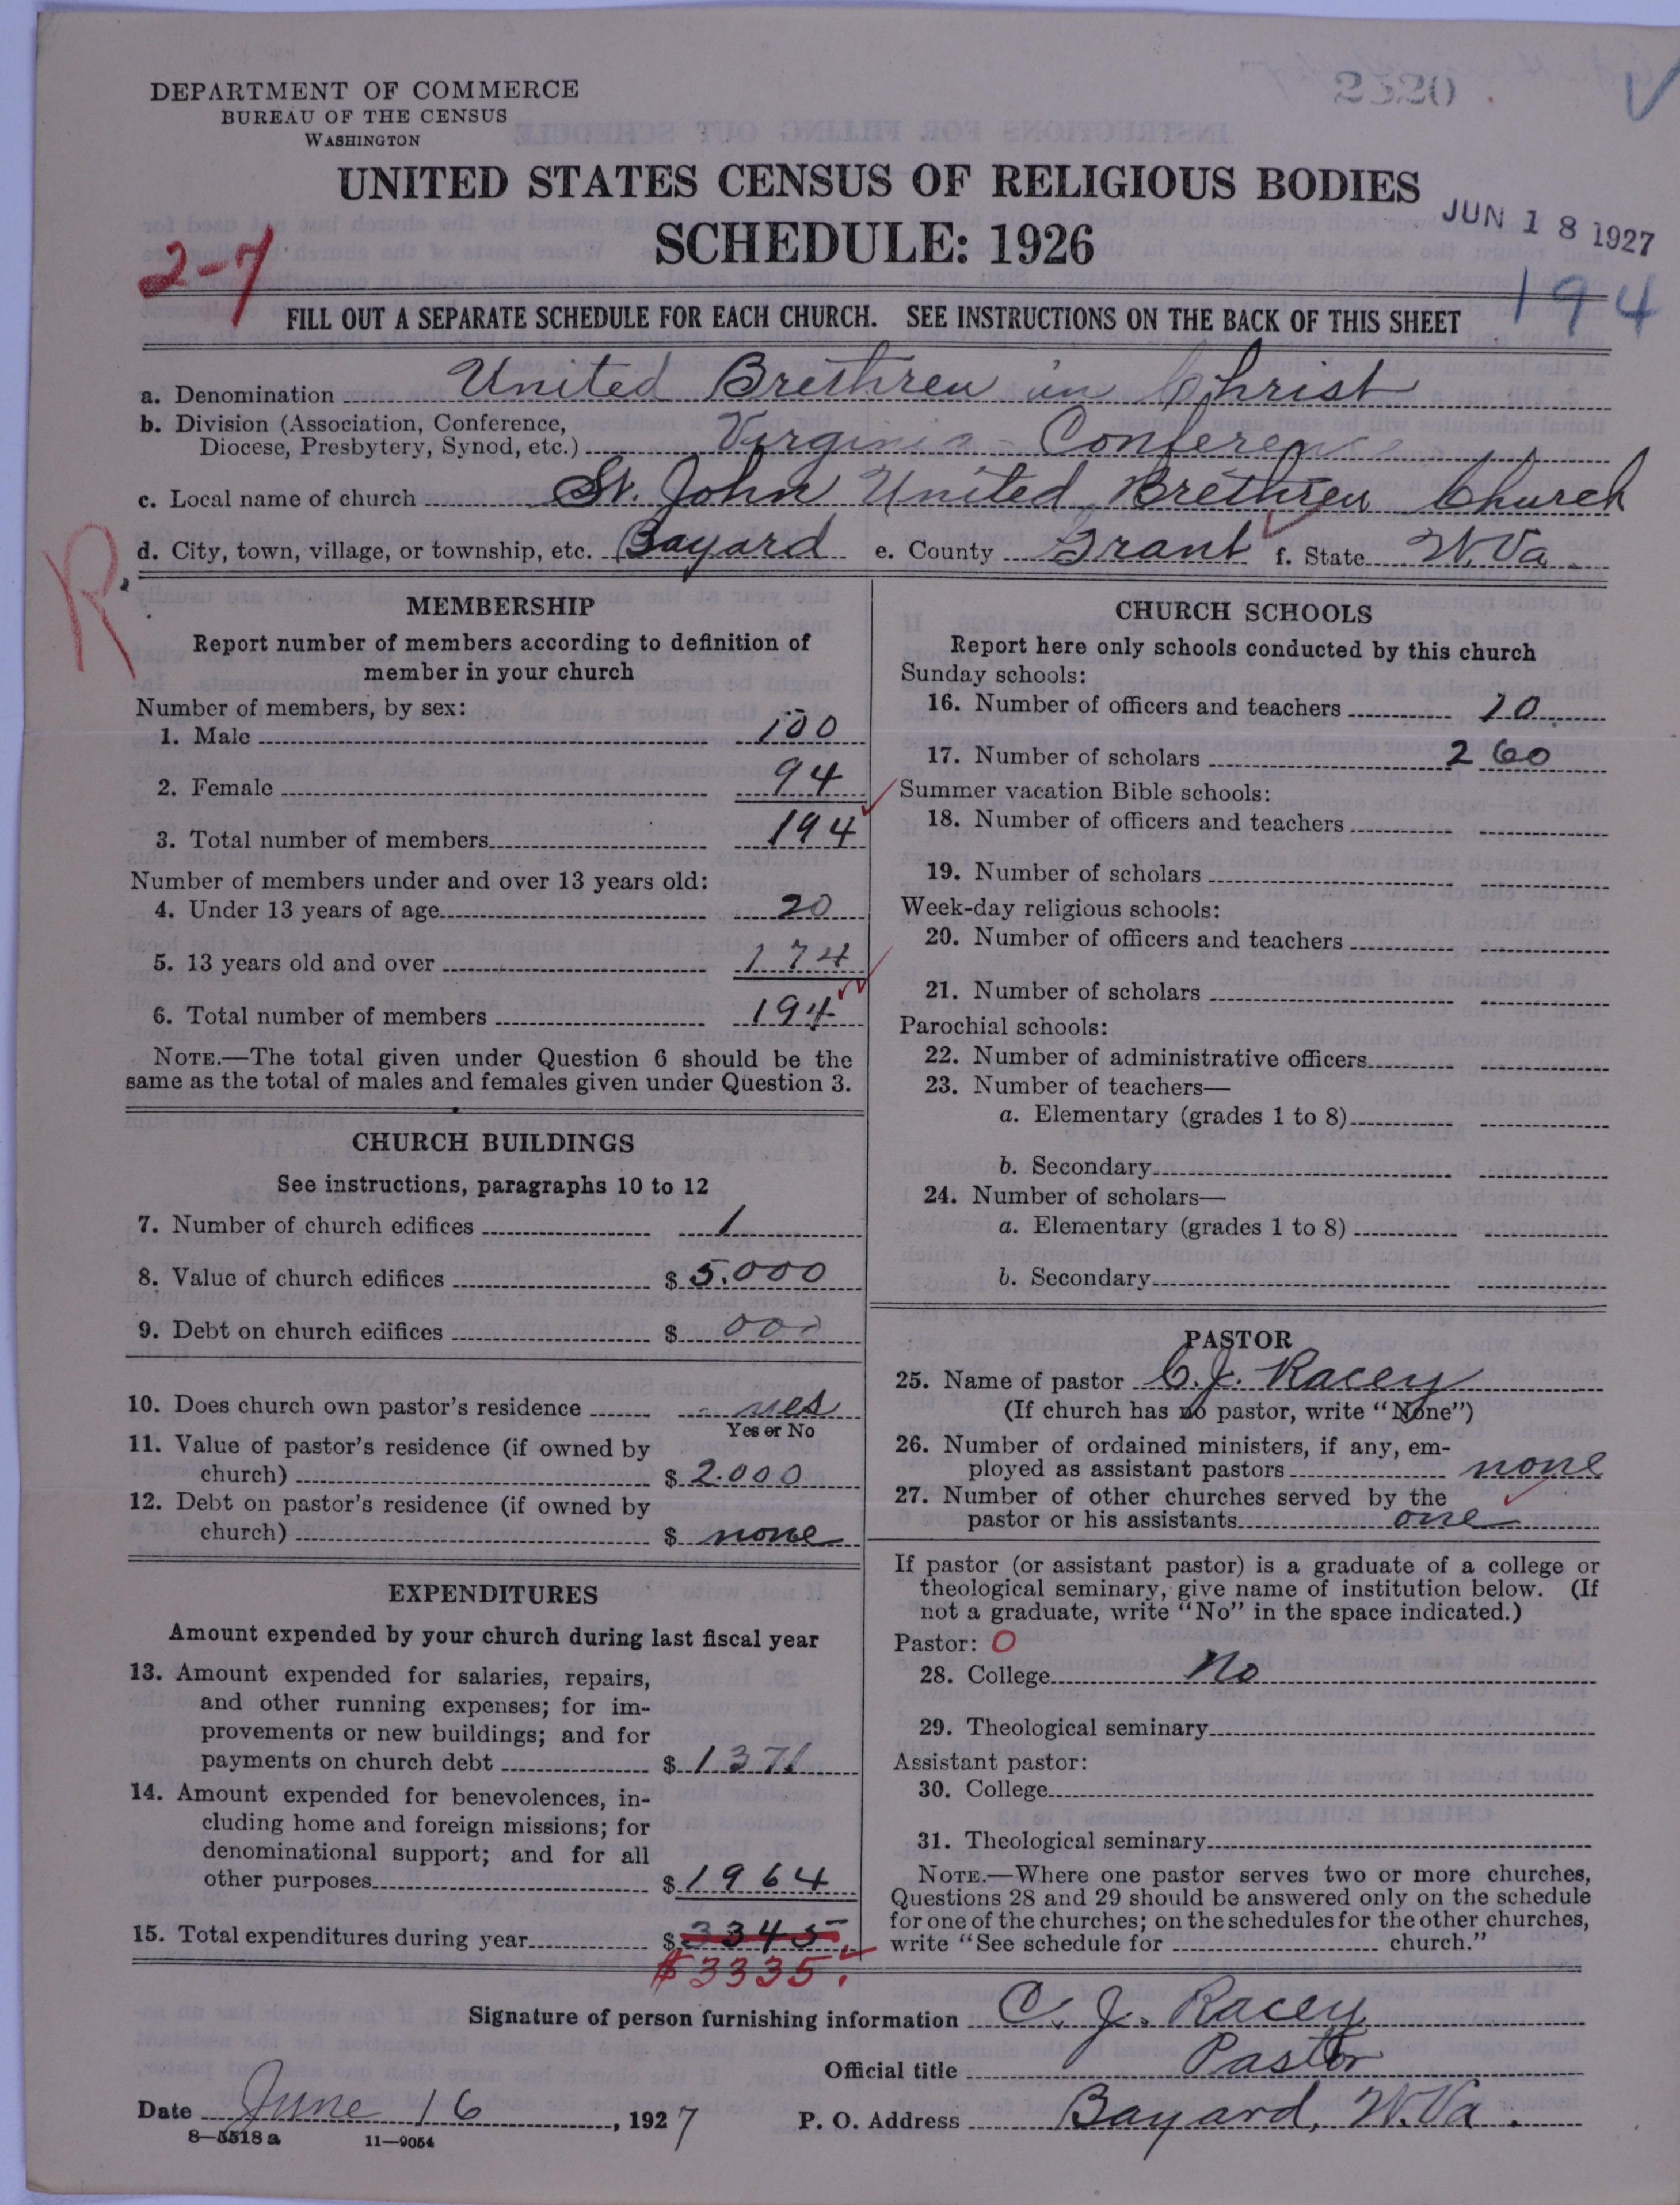 2520
DEPARTMENT OF COMMERCE
BUREAU OF THE CENSUS
WASHINGTON
UNITED STATES CENSUS OF RELIGIOUS BODIES
SCHEDULE: 1926
JUN 18 1927
2-7
194
FILL OUT A SEPARATE SCHEDULE FOR EACH CHURCH. SEE INSTRUCTIONS ON THE BACK OF THIS SHEET
a. Denomination United Brethren in Christ
b. Division (Association, Conference,
Diocese, Presbytery, Synod, etc.) Virginia - Conference
c. Local name of church St. John United Brethren Church
d. City, town, village, or township, etc. Bayard e. County Grant f. State W.Va.
R
MEMBERSHIP
Report number of members according to definition of
member in your church
Number of members, by sex:
1. Male 100
2. Female 94
3. Total number of members 194
Number of members under and over 13 years old:
4. Under 13 years of age 20
5. 13 years old and over 174
6. Total number of members 194
NOTE.—The total given under Question 6 should be the
same as the total of males and females given under Question 3.
CHURCH BUILDINGS
See instructions, paragraphs 10 to 12
7. Number of church edifices 1
8. Value of church edifices $ 5.000
9. Debt on church edifices $ 000
10. Does church own pastor's residence yes
Yes or No
11. Value of pastor's residence (if owned by
church) $ 2.000
12. Debt on pastor's residence (if owned by
church) $ none
EXPENDITURES
Amount expended by your church during last fiscal year
13. Amount expended for salaries, repairs,
and other running expenses; for im-
provements or new buildings; and for
payments on church debt $ 1371
14. Amount expended for benevolences, in-
cluding home and foreign missions; for
denominational support; and for all
other purposes $ 1964
15. Total expenditures during year $ 3345
$3335.
CHURCH SCHOOLS
Report here only schools conducted by this church
Sunday schools:
16. Number of officers and teachers 20
17. Number of scholars 260
Summer vacation Bible schools:
18. Number of officers and teachers
19. Number of scholars
Week-day religious schools:
20. Number of officers and teachers
21. Number of scholars
Parochial schools:
22. Number of administrative officers
23. Number of teachers—
a. Elementary (grades 1 to 8)
b. Secondary
24. Number of scholars—
a. Elementary (grades 1 to 8)
b. Secondary
PASTOR
25. Name of pastor C. J. Racey
(If church has no pastor, write "None")
26. Number of ordained ministers, if any, em-
ployed as assistant pastors none
27. Number of other churches served by the
pastor or his assistants one
If pastor (or assistant pastor) is a graduate of a college or
theological seminary, give name of institution below. (If
not a graduate, write "No" in the space indicated.)
Pastor: 0
28. College No
29. Theological seminary
Assistant pastor:
30. College
31. Theological seminary
NOTE.—Where one pastor serves two or more churches,
Questions 28 and 29 should be answered only on the schedule
for one of the churches; on the schedules for the other churches,
write "See schedule for church."
Signature of person furnishing information C. J. Racey
Official title Pastor
Date June 16, 1927 P. O. Address Bayard, W.Va.
8—5518a 11—9054